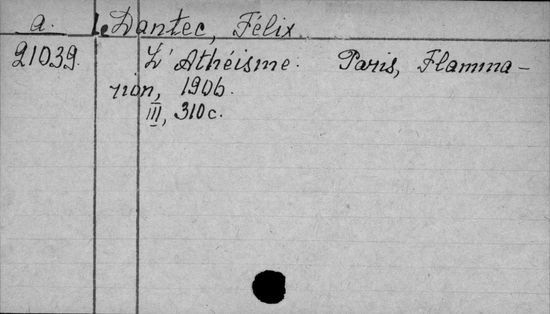 a. Le Dantec, Félix
21039. L'Athéisme. Paris, Flamma-
rion, 1906.
III, 310 c.